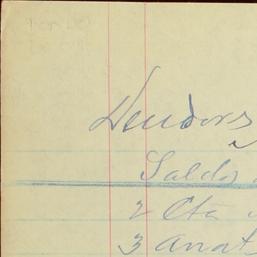 Deudors
Saldo
2 Cta
3 Anat